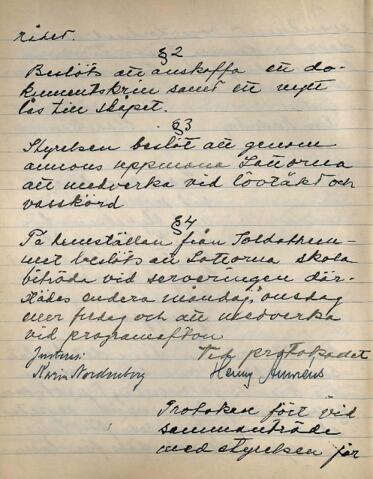 rådet.
§2
Beslöts att anskaffa ett do-
kumentskrin samt ett nytt
lås till skåpet.
§3
Styrelsen beslöt att genom
annons uppmana Lottorna
att medverka vid lövtäkt och
vasskörd
§4
På hemställan från Soldathem-
met beslöts att Lottorna skola
biträda vid serveringen där-
städes endera måndag, onsdag
eller fredag och att medverka
vid programafton
Justeras: Vid protokollet
Karin Nordenborg Henny
Protokoll fört vid
sammanträde
med styrelsen för